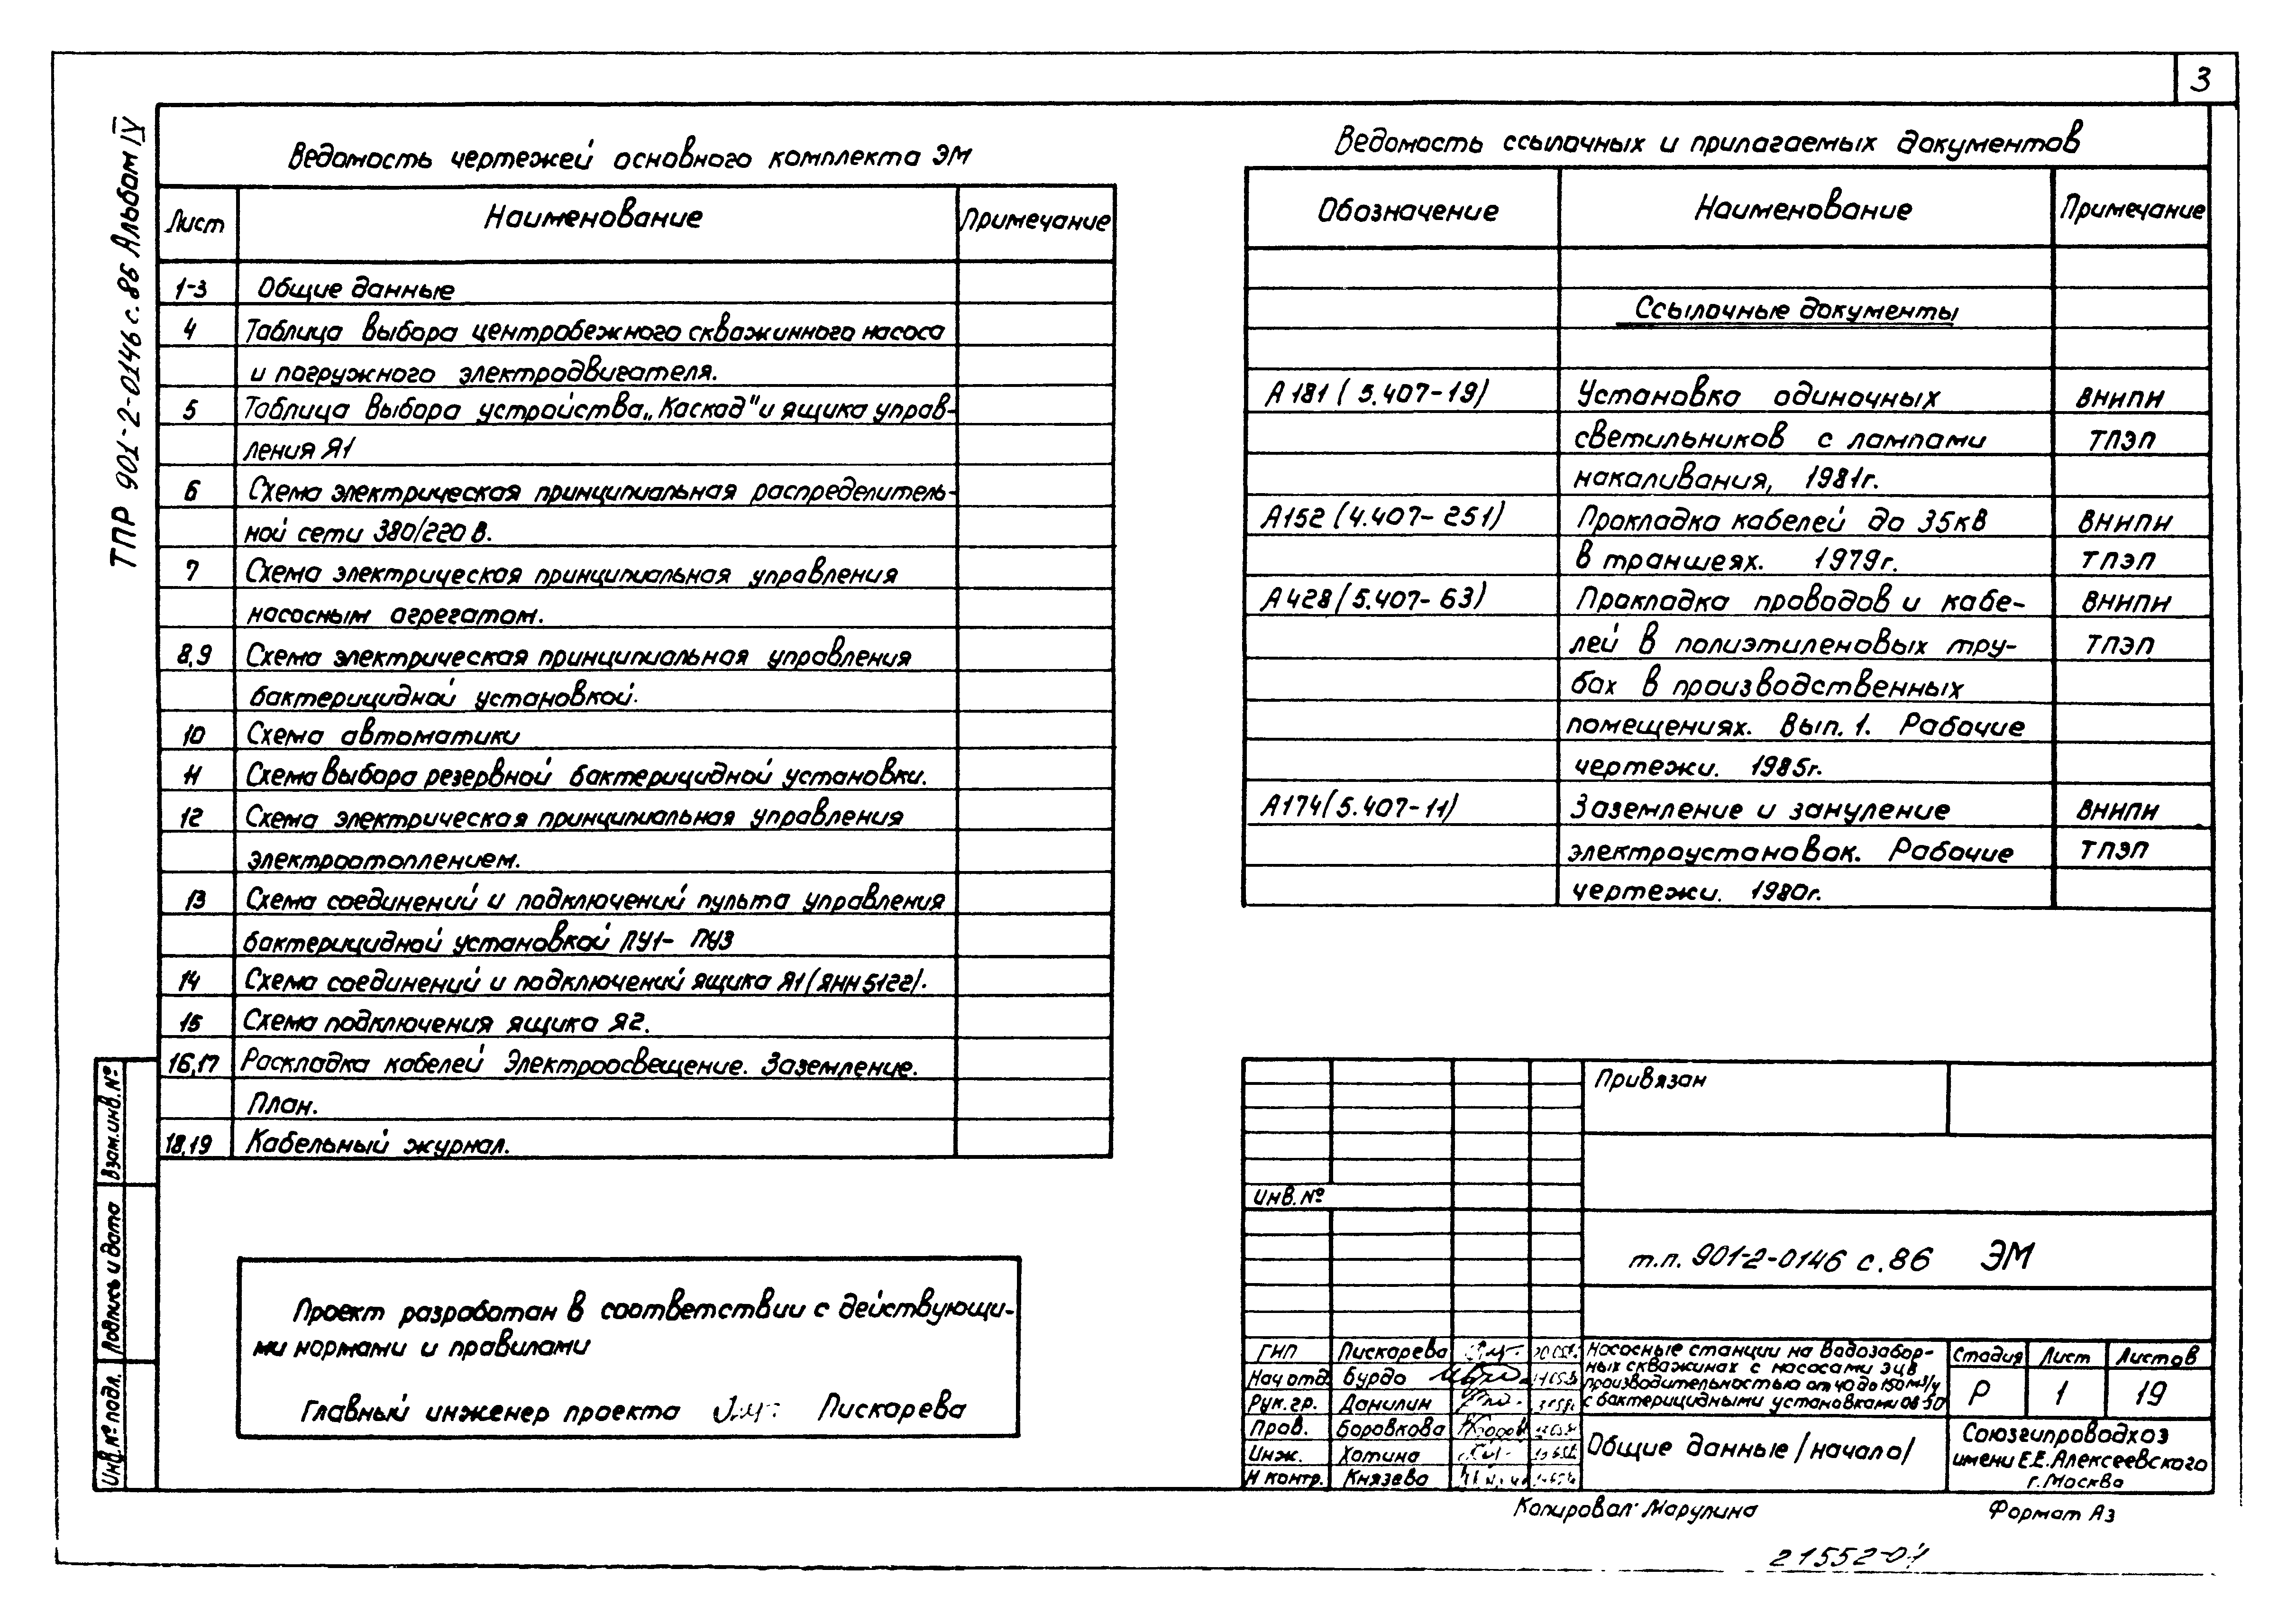 3
ТПР 901-2-0146 с.86 Альбом IV
Ведомость чертежей основного комплекта ЭМ
Лист Наименование Примечание
1-3 Общие данные
4 Таблица выбора центробежного скважинного насоса
и погружного электродвигателя.
5 Таблица выбора устройства „Каскад" и ящика управ-
ления Я1
6 Схема электрическая принципиальная распределитель-
ной сети 380/220 В.
7 Схема электрическая принципиальная управления
насосным агрегатом.
8,9 Схема электрическая принципиальная управления
бактерицидной установкой.
10 Схема автоматики
11 Схема выбора резервной бактерицидной установки.
12 Схема электрическая принципиальная управления
электроотоплением.
13 Схема соединений и подключений пульта управления
бактерицидной установкой ПУ1- ПУ3
14 Схема соединений и подключений ящика Я1 (ЯНН5122).
15 Схема подключения ящика Я2.
16,17 Раскладка кабелей Электроосвещение. Заземление.
План.
18,19 Кабельный журнал.
Ведомость ссылочных и прилагаемых документов
Обозначение Наименование Примечание
Ссылочные документы
А 181 (5.407-19) Установка одиночных ВНИПИ
светильников с лампами ТПЭП
накаливания, 1981г.
А152 (4.407-251) Прокладка кабелей до 35кВ ВНИПИ
в траншеях. 1979г. ТПЭП
А428 (5.407-63) Прокладка проводов и кабе- ВНИПИ
лей в полиэтиленовых тру- ТПЭП
бах в производственных
помещениях. Вып. 1. Рабочие
чертежи. 1985г.
А174 (5.407-11) Заземление и зануление ВНИПИ
электроустановок. Рабочие ТПЭП
чертежи. 1980г.
Проект разработан в соответствии с действующи-
ми нормами и правилами
Главный инженер проекта Пискарева
Взам.инв.№
Подпись и дата
Инв.№ подл.
Привязан
Инв.№
т.п. 901-2-0146 с.86 ЭМ
ГИП Пискарева
Нач отд. Бурдо
Рук.гр. Данилин
Пров. Боровкова
Инж. Хотина
Н контр. Князева
Насосные станции на водозабор-
ных скважинах с насосами ЭЦВ
производительностью от 40 до 150 м³/ч
с бактерицидными установками ОВ-50
Стадия Лист Листов
Р 1 19
Общие данные /начало/
Союзгипроводхоз
имени Е.Е.Алексеевского
г.Москва
Копировал Марулина
Формат А3
21552-04